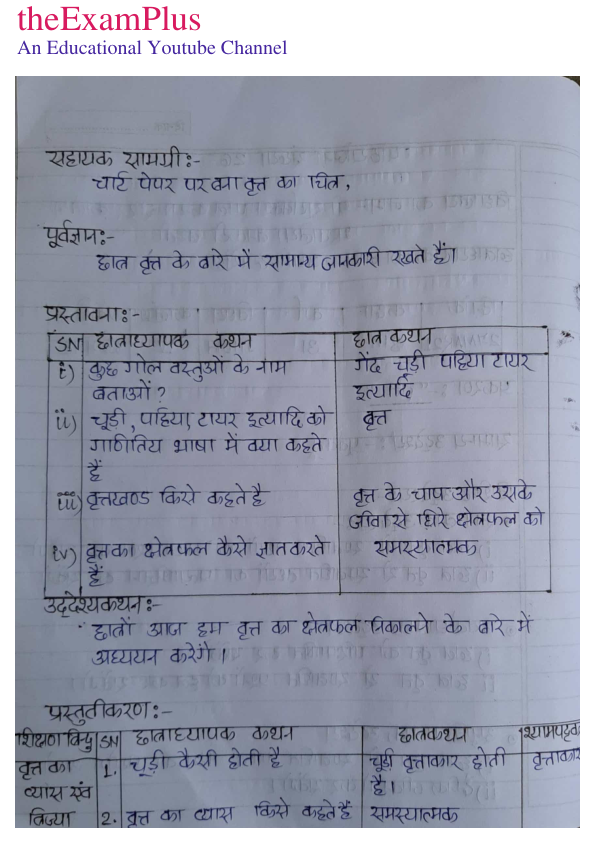 theExamPlus
An Educational Youtube Channel
सहायक सामग्री:-
चार्ट पेपर पर बना वृत्त का चित्र,
पूर्वज्ञान:-
छात्र वृत्त के बारे में सामान्य जानकारी रखते हैं।
प्रस्तावना:-
SN छात्राध्यापक कथन छात्र कथन
i) कुछ गोल वस्तुओं के नाम गेंद चूड़ी पहिया टायर
बताओं ? इत्यादि
ii) चूड़ी, पहिया, टायर इत्यादि को वृत्त
गाणितिय भाषा में क्या कहते
हैं
iii) वृत्तखण्ड किसे कहते है वृत्त के चाप और उसके
जीवा से घिरे क्षेत्रफल को
iv) वृत्त का क्षेत्रफल कैसे ज्ञात करते समस्यात्मक
हैं
उद्देश्यकथन:-
छात्रों आज हम वृत्त का क्षेत्रफल निकालने के बारे में
अध्ययन करेंगे।
प्रस्तुतीकरण:-
शिक्षण बिन्दु SN छात्राध्यापक कथन छात्रकथन श्यामपट्टक
वृत्त का 1. चूड़ी कैसी होती है चूड़ी वृत्ताकार होती वृत्ताकार
व्यास एवं है।
त्रिज्या 2. वृत्त का व्यास किसे कहते हैं समस्यात्मक